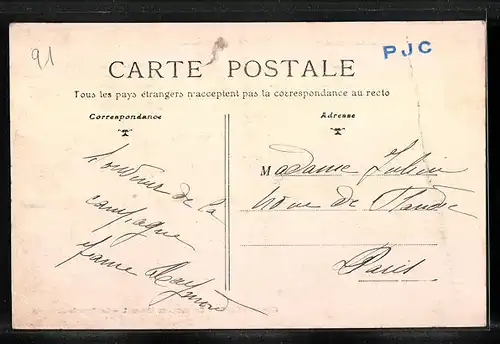 91
PJC
CARTE POSTALE
Tous les pays étrangers n'acceptent pas la correspondance au recto
Correspondance
Adresse
de la
campagne
Madame Julien
rue de
Paris